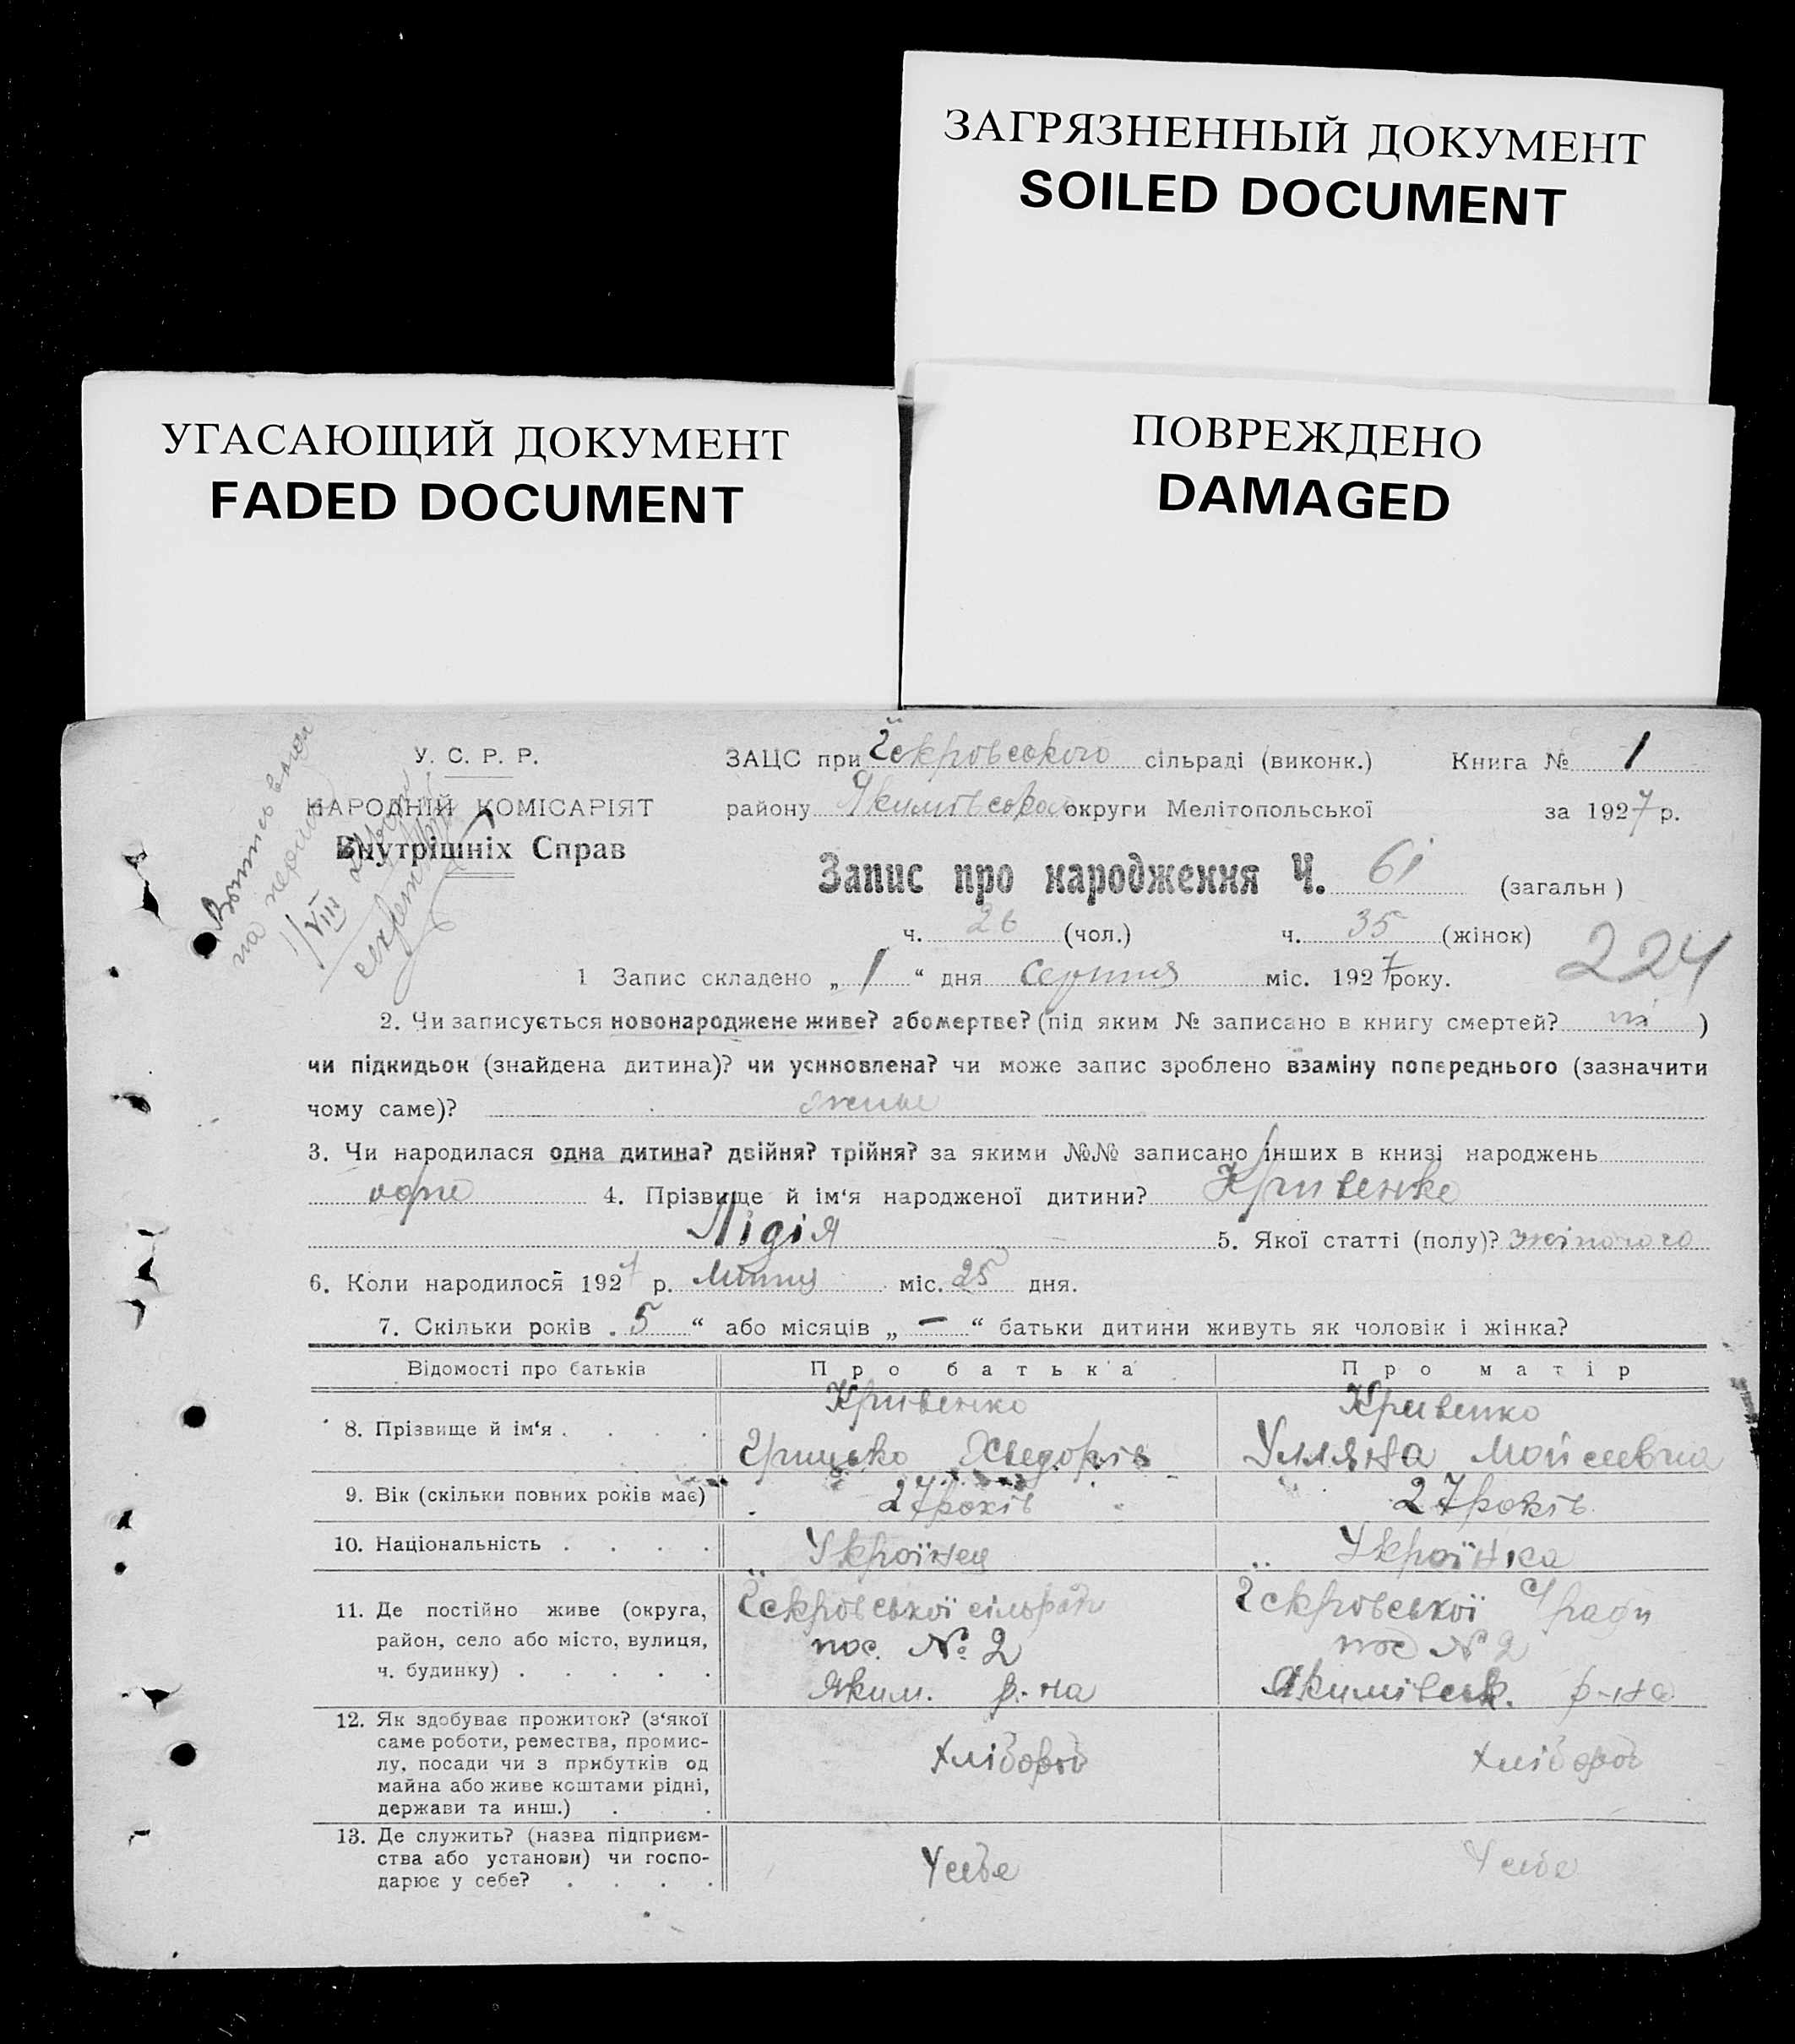 ЗАГРЯЗНЕННЫЙ ДОКУМЕНТ
SOILED DOCUMENT
УГАСАЮЩИЙ ДОКУМЕНТ
FADED DOCUMENT
ПОВРЕЖДЕНО
DAMAGED
У. С. Р. Р.
НАРОДНІЙ КОМІСАРІЯТ
Внутрішніх Справ
ЗАЦС при сільраді (виконк.) Книга № 1
району округи Мелітопольської за 1927 р.
Запис про народження Ч. 61 (загальн)
ч. 26 (чол.) ч. 35 (жінок)
224
1 Запис складено „ 1 “ дня серпня міс. 1927 року.
2. Чи записується новонароджене живе? або мертве? (під яким № записано в книгу смертей? ні )
чи підкидьок (знайдена дитина)? чи усиновлена? чи може запис зроблено взаміну попереднього (зазначити
чому саме)? живе
3. Чи народилася одна дитина? двійня? трійня? за якими №№ записано інших в книзі народжень
одне 4. Прізвище й ім‘я народженої дитини? Кривенко
Лідія 5. Якої статті (полу)? жіночого
6. Коли народилося 1927 р. Липня міс. 25 дня.
7. Скільки років „ 5 “ або місяців „ — “ батьки дитини живуть як чоловік і жінка?
Відомості про батьків Про батька Про матір
8. Прізвище й ім‘я . . . . Кривенко Кривенко
Грицько Хведорів Улляна Мойсеевна
9. Вік (скільки повних років має) 27 років 27 років
10. Національність . . . . Українец Українка
11. Де постійно живе (округа,
район, село або місто, вулиця,
ч. будинку) . . . . .
сільради
пос. № 2
Яким. р-на
пос № 2
Якимівськ. р-на
12. Як здобуває прожиток? (з‘якої
саме роботи, ремества, промис-
лу, посади чи з прибутків од
майна або живе коштами рідні,
держави та инш.) . .
Хлібороб Хлібороб
13. Де служить? (назва підприєм-
ства або установи) чи госпо-
дарює у себе? . . . .
У себе У себе